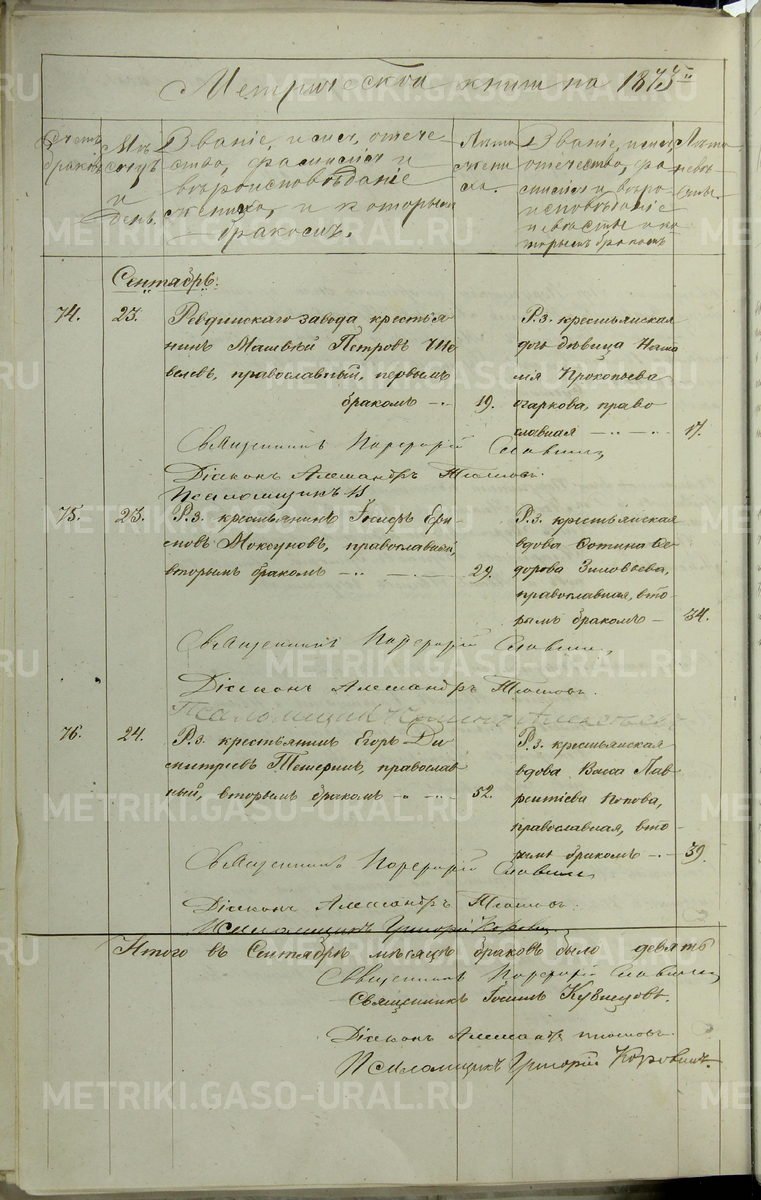 Метрической книги на 1873 й
Счетъ браковъ.
Мѣсяцъ и день.
Званіе, имя, отече
ство, фамилія и
вѣроисповѣданіе
жениха, и которымъ
бракомъ.
Лѣта жениха.
Званіе, имя,
отечество, фа
милія и вѣро
исповѣданіе
невѣсты и ко
торымъ бракомъ
Лѣта невѣсты.
Сентябрь.
74. 23. Ревдинскаго завода крестья
нинъ Матвѣй Петровъ
православный, первымъ
бракомъ 19.
Р.з. крестьянская
дочь дѣвица Ната
лія Прокопьева
право
славная 17.
Священникъ Порфирій Славнинъ
Діаконъ Александръ
Псаломщикъ
75. 23. Р.з. крестьянинъ Іосифъ
православный,
вторымъ бракомъ 29.
Р.з. крестьянская
вдова Фотина Ѳе
дорова Зиновьева,
православная, вто
рымъ бракомъ 34.
Священникъ Порфирій Славнинъ
Діаконъ Александръ
Псаломщикъ
76. 24. Р.з. крестьянинъ Егоръ Ди
митріевъ Темеринъ, православ
ный, вторымъ бракомъ 52.
Р.з. крестьянская
вдова Васса Лав
рентіева Попова,
православная, вто
рымъ бракомъ 39.
Священникъ Порфирій Славнинъ
Діаконъ Александръ
Псаломщикъ Григорій Коровинъ
Итого въ Сентябрѣ мѣсяцѣ браковъ было девять
Священникъ Порфирій Славнинъ
Священникъ Іоаннъ Кузнецовъ.
Діаконъ Александръ
Псаломщикъ Григорій Коровинъ.
METRIKI.GASO-URAL.RU